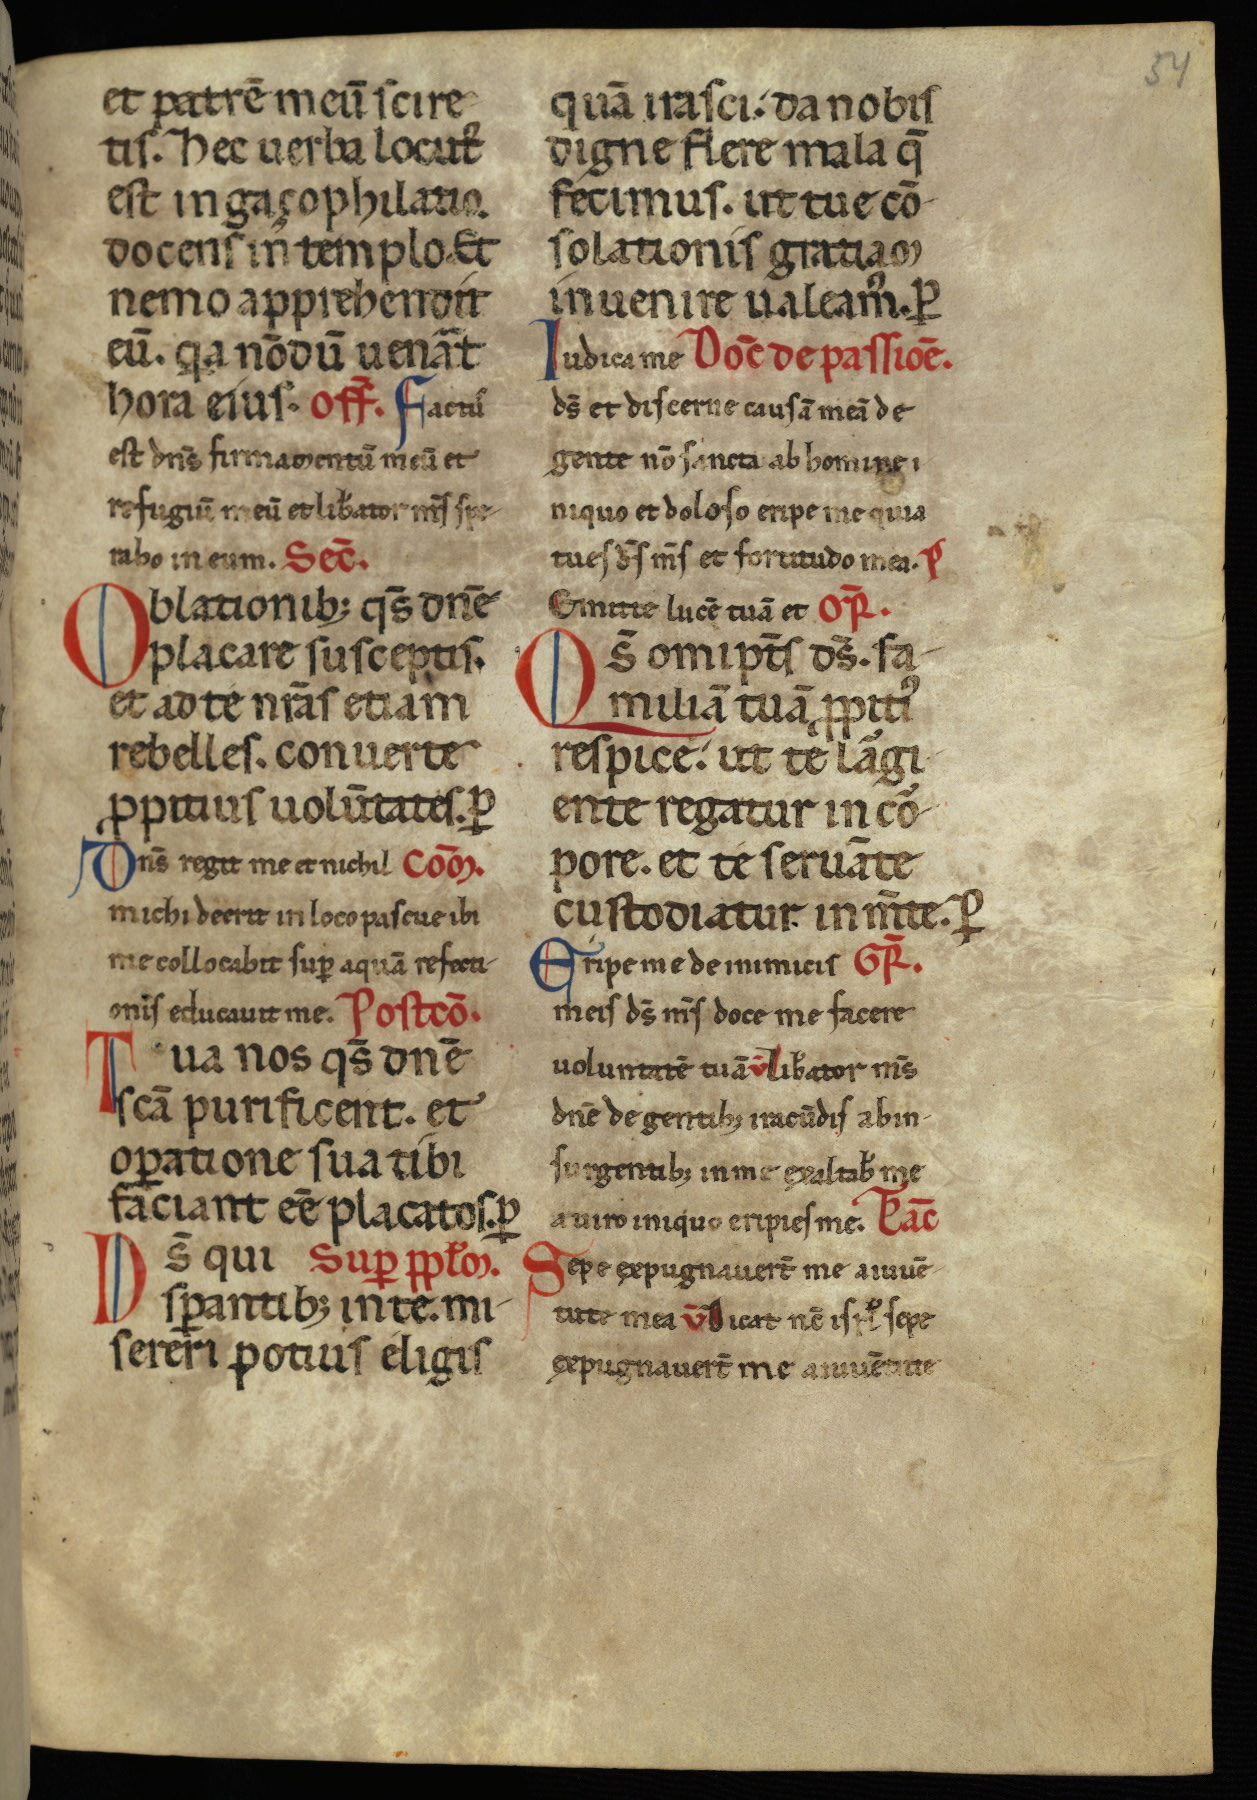 54
et patrē meū scire
tis. Hec uerba locut᷒
est in gaçophilatio.
docens in templo. Et
nemo apprehendit
eū. qa nōdū uenāt
hora eius. Off̄. Factū
est dn̄s firmamentū meū et
refugiū meū et lib̄ator m̄s spe
rabo in eum. Sec̄.
Oblationib; qs̄ dn̄e
placare susceptis.
et ad te nr̄as etiam
rebelles. conuerte
ꝓpitius uolūtates. ꝑ
Dn̄s regit me et nichil Com̄.
michi deerit in loco pascue ibi
me collocabit suꝑ aquā refecti
onis educauit me. Postcō.
Tua nos qs̄ dn̄e
scā purificent. et
oꝑatione sua tibi
faciant eē placatos. ꝑ
Ds̄ qui Suꝑ ppl̄m.
sꝑantib; in te. mi-
sereri potius eligis
quā irasci: da nobis
digne flere mala q̄
fecimus. ut tue cō-
solationis gratiam
inuenire ualeam᷒. ꝑ
Iudica me Dōc de passiōe.
ds̄ et discerne causā meā de
gente nō sancta ab homine i
niquo et doloso eripe me quia
tu es ds̄ m̄s et fortitudo mea. P
Emitte lucē tuā et Or̄.
Qs̄ omipt̄s ds̄. fa-
miliā tuā ꝓpiti᷒
respice: ut te lāgi
ente regatur in cō-
pore. et te seruāte
custodiatur in m̄te. ꝑ
Eripe me de inimicis Gr̄.
meis ds̄ m̄s doce me facere
uoluntatē tuā v̄ Lib̄ator m̄s
dn̄e de gentib; iracūdis ab in-
surgentib; in me exaltab̄ me
a uiro iniquo eripies me. Tac̄
Sepe expugnauert̄ me a iuuē
tute mea v̄ Dicat nē isrl̄ sepe
expugnauert̄ me a iuuētute